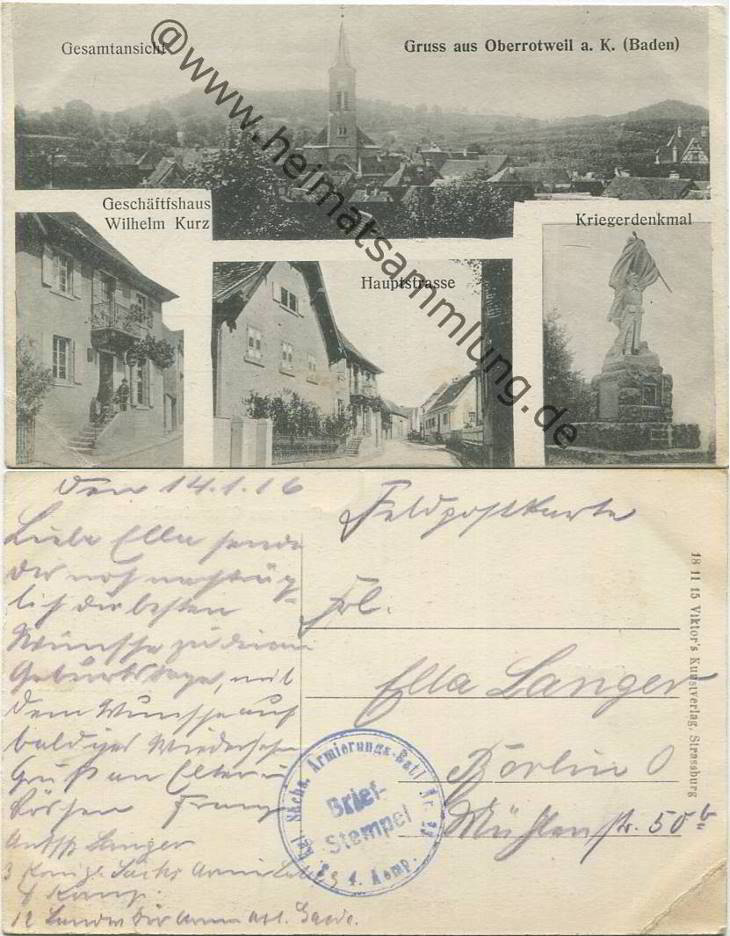 Gesamtansicht
Gruss aus Oberrotweil a. K. (Baden)
@www.heimatsammlung.de
Geschäftfshaus
Wilhelm Kurz
Hauptstrasse
Kriegerdenkmal
Den 14.1.16
Feldpostkarte
Liebe Ella sende
dir noch nachträg-
lich die besten
Wünsche zu deinem
Geburtstage, mit
dem Wunsche auf
baldiges Wiedersehen
Gruß an Eltern
Franz
Langer
3 Königl. Sächs
4 Komp.
12 Landw
Frl.
Ella Langer
Berlin O
Mühlenstr. 50b
Kgl. Sächs. Armierungs-Batl.
Brief-
Stempel
4. Komp.
18 11 15 Viktor's Kunstverlag, Strassburg